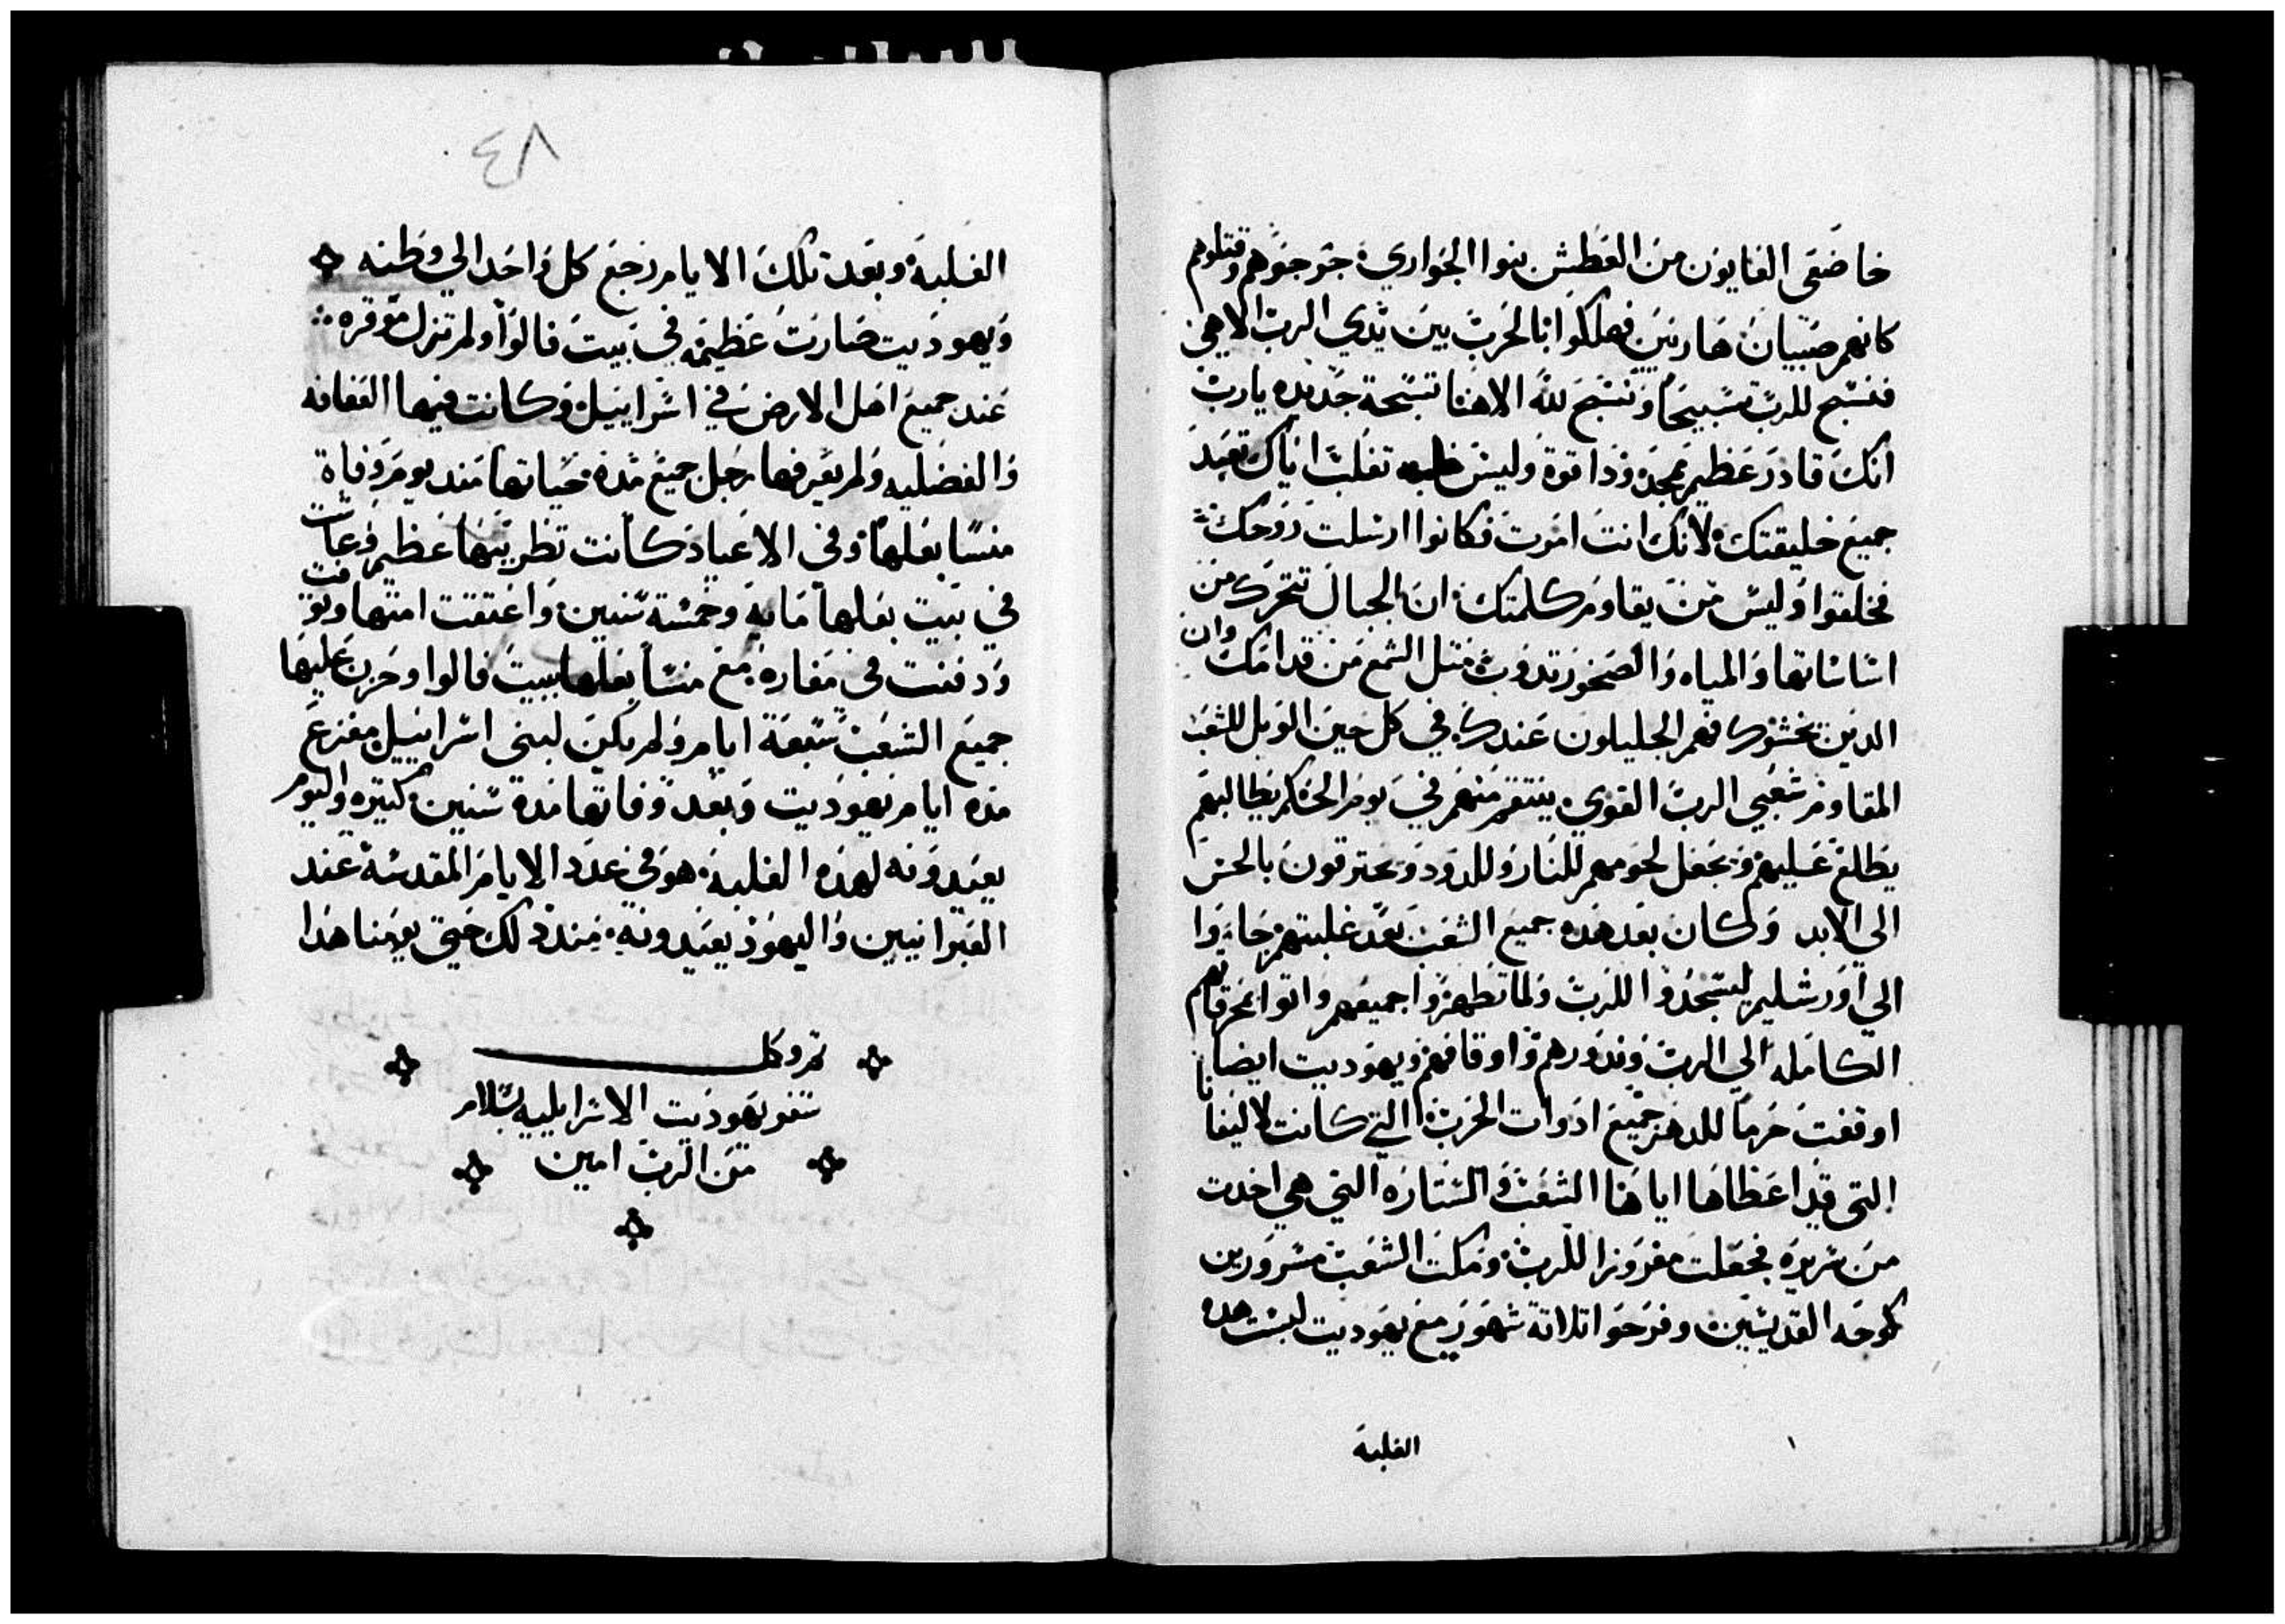 خاضعى الغايون من العطش بنوا الجواري جرجوهم وقتلوهم
كانهم صبيان هاربين فهلكوا بالحرب بين يدي الرب الاهي
فنسبح للرب تسبيحا ونسبح لله الاهنا تسبحة جديده يارب
انك قادر عظيم بمجد وذا قوة وليس تغلب اياك تعبد
جميع خليقتك لانك انت امرت فكانوا ارسلت روحك
فخلقوا وليس من يقاوم كلمتك ان الجبال تتحرك من
اساساتها والمياه والصخور تدوب متل الشمع من قدامك وان
الدين يخشوك فهم الجليلون عندك في كل حين الويل للشعب
المقاوم شعبي الرب القوي ينتقم منهم في يوم الحكم يطالبهم
يطلع عليهم ويجعل لحومهم للنار وللدود ويحترقون بالحس
الى الابد وكان بعد هده جميع الشعب بعد غلبتهم جاءوا
الي اورشليم ليسجدوا للرب ولما تطهروا جميعهم واتوا بمحرقاتهم
الكامله الي الرب وندورهم واوقافهم ويهوديت ايضا
اوقفت حرما للدهر جميع ادوات الحرب التي كانت لاليفانا
التي قد اعطاها اياها الشعب والستاره التي هي اخدت
من سريره فجعلت مفروزا للرب ومكت الشعب مسرورين
كوجه القديسين وفرحوا تلاتة شهور مع يهوديت لبست هده
الغلبة
٨٤
الغلبة وبعد تلك الايام رجع كل واحد الي وطنه
ويهوديت صارت عظيمه في بيت فالوا ولم تزل موقره
عند جميع اهل الارض في اسراييل وكانت فيها العفافه
والفضليه ولم يعرفها رجل جميع مدة حياتها مند يوم وفاة
منسا بعلها وفي الاعياد كانت تظر بمجد عظيم وعاشت
في بيت بعلها مايه وخمسة سنين واعتقت امتها وتوفت
ودفنت في مغارة مع منسا بعلها ببيت فالوا وحزن عليها
جميع الشعب سبعة ايام ولم يكن لبني اسراييل مفزع
مده ايام يهوديت وبعد وفاتها مدة سنين كتيره واليوم
يعيدونه لهده الغلبة هو في عدد الايام المقدسة عند
العبرانيين واليهود يعيدونه مند دلك حتي يومنا هدا
تم وكمل
سفر يهوديت الاسرايليه بسلام
من الرب امين